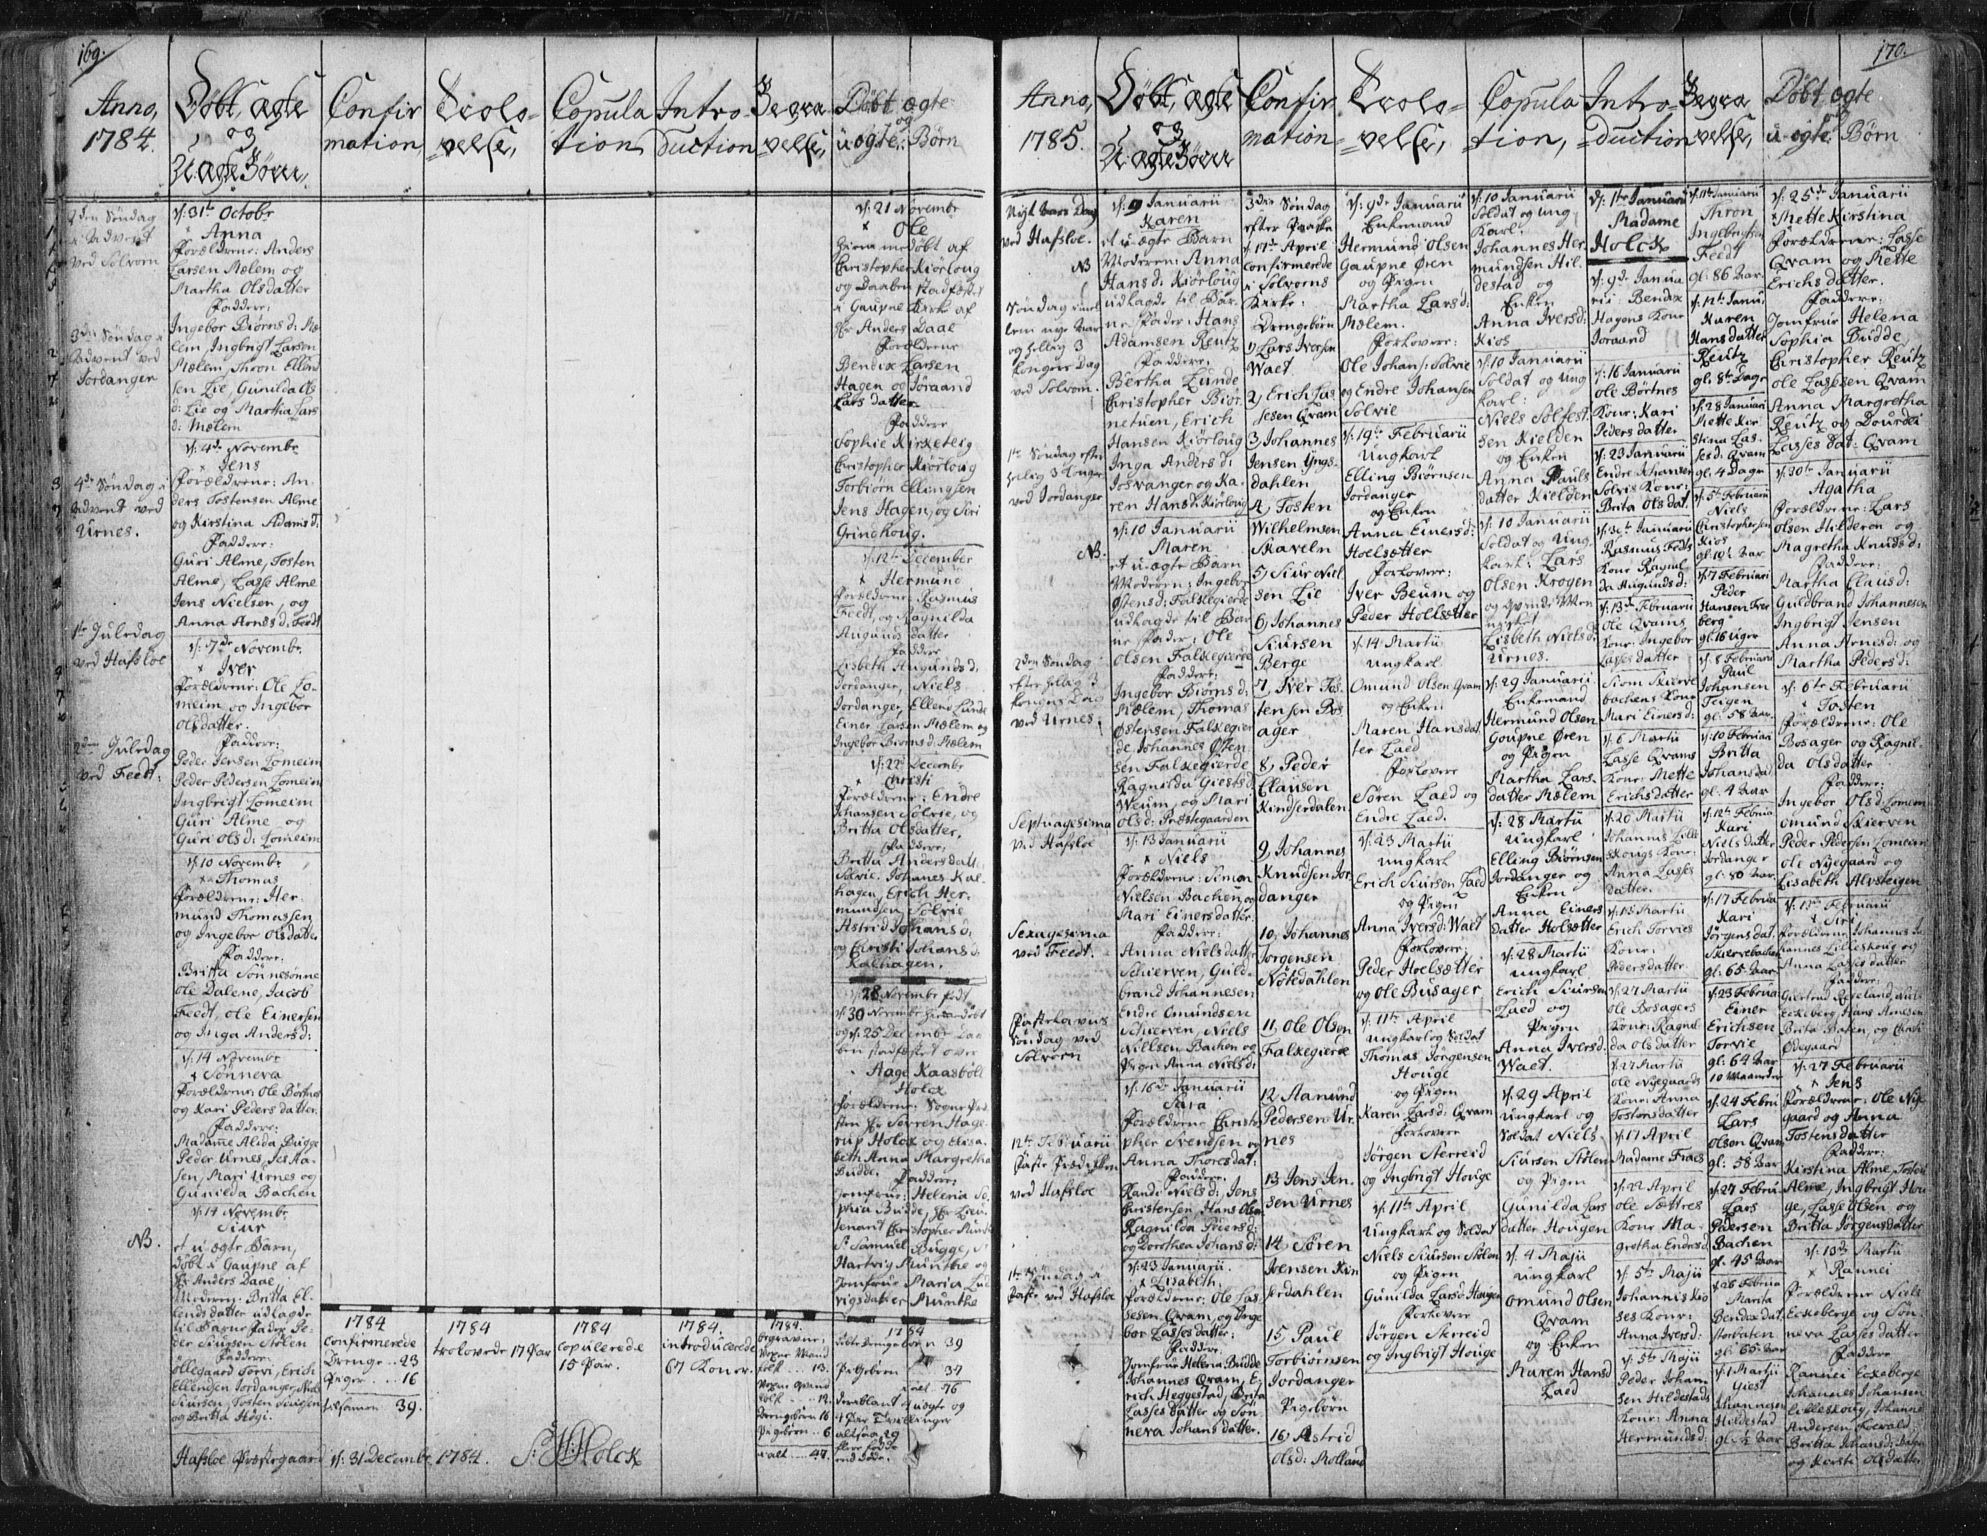 169.
Anno,
1784.
Døbt, ægte
og
U ægte Børn,
Confir
mation,
Trolo-
velse,
Copula
tion
Intro-
duction
Begra
velse,
Døbt ægte
og
u ægte: Børn
2den Søndag
i Advent
ved Solvorn
3die Søndag i
Advent ved
Jordanger
4de Søndag i
Advent ved
Urnes.
1te Juledag
ved Hafsloe
2den Juledag
ved Feedt.
NB.
d: 31te Octobr
Anna
Forældrene: Anders
Larsen Mælem og
Martha Olsdatter
Faddere:
Ingebor Biørnsd: Mæ
lem Ingbrigt Larsen
Mælem, Thron Ellend
sen Lie, Gunilda Ols
d: Lie og Martha Lars
d: Mælem
d: 4de Novembr
Jens
Forældrene: An-
ders Tostensen Alme
og Kirstina Adamsd:
Faddere:
Guri Alme, Tosten
Alme, Lasse Alme
Jens Nielsen, og
Anna Arnesd: Feedt
d: 7de Novembr
Iver
Forældrene: Ole Lo-
meim og Ingebor
Olsdatter.
Faddere:
Peder Jensen Lomeim
Peder Pedersen Lomeim
Ingbrigt Lomeim
Guri Alme, og
Guri Olsd: Lomeim
d: 10 Novembr
Thomas
Forældrene: Her-
mund Thomassen
og Ingebor Olsdatter
Faddere:
Britta Sønnesønne
Ole Dalene, Jacob
Feedt, Ole Einersen
og Inga Andersd:
d: 14 Novembr
Sønneva
Forældrene: Ole Børtnes
og Kari Pedersdatter.
Faddere:
Madame Alida Bugge
Peder Urnes, Jens Aa-
sen, Mari Urnes og
Gunilda Bachen
d: 14 Novembr
Siur
et u ægte Barn,
Døbt i Gaupne af
Hr Anders Daae
Moderen: Britta El-
lendsdatter udlagde
til Barne Fader Pe-
der Siursen Stolen
Faddere:
Øllegaard Torvi, Erich
Ellendsen Jordanger, Niels
Siursen, Tosten Haugen
og Britta Høgi.
1784
confirmerede
Drenge .. 23
Piger .... 16
tilsamen 39.
1784
trolovede 17 Par
1784
copulerede
15 Par.
1784.
introducerede
67 Koner.
1784.
begravne:
Voxne Mand
folk .... 13.
Voxne Qvind
folk .. 12
Drengebørn 16
Pigebørn .. 6
i alt .... 47.
Hafsloe Præstegaard d: 31 Decembr. 1784. S: H: Holck
d: 21 Novembr
Ole
hiemmedøbt af
Christopher Kiørloug
og Daaben stadfæstet
i Gaupne Kirke af
Hr Anders Daae
Forældrene
Bendix Larsen
Hagen og Joraand
Larsdatter.
Faddere
Sophie Kirketeig
Christopher Kiørloug
Torbiørn Ellingsen
Jens Hagen, og Siri
Grindhoug.
d: 12te December
Hermund
Forældrene: Rasmus
Feedt, og Ragnilda
Augunds datter
Faddere
Lisbeth Augundsd:
Jordanger, Niels
Jordanger, Ellend Lunde
Einer Larsen Mælem og
Ingebor Biørnsd: Mælem
d: 22de December
Christi
Forældrene: Endre
Johansen Solvie, og
Britta Olsdatter,
Faddere:
Britta Andersdatt:
Solvie. Johanes Kal-
hagen, Erich Her-
mundsen Solvie
Astrid Johansd:
og Christi Johansd:
Kalhagen.
d: 28 Novembr født
d: 30 Novembr hiemedøbt
og d: 25 December Daa-
ben stadfæstet over
Aage Kaasbøll
Holck
Forældrene: Sogne Præ
sten Hr Søren Hage-
rup Holck og Elisa-
beth Anna Margretha
Budde.
Faddere:
Jomfrue: Helena So-
phia Budde, Hr Lieu-
tenant Christopher Munthe
Sr Samuel Bugge, Sr
Hartvig Munthe og
Jomfrue Maria Lud
vigsdatter Munthe
1784
Døbte Drengebørn 39
Pigebørn .. 37
i alt. 76
deriblant 4 uægte og
1 Par Tvillinger
altsaa 29
flere fødde
end døde.
170.
Anno,
1785.
Døbt, ægte
og
U ægte Børn
Confir
mation,
Trolo-
velse,
Copula
tion,
Intro-
duction
Begra
velse,
Døbt ægte
u-ægte: Børn
Nyt Aars Dag
ved Hafsloe.
NB
Søndag imel
lem nye Aar
og hellig 3
Konger Dag
ved Solvorn.
1te Søndag efter
hellig 3 Konger
ved Jordanger
NB.
2den Søndag
efter hellig 3
Kongers Dag
ved Urnes.
Septuagesima
ved Hafsloe
Sexagesima
ved Feedt.
Fastelavns
Søndag ved
Solvorn
12te Februarii
Faste Prædiken
ved Hafsloe
1te Søndag i
Faste ved Hafsloe
d: 9 Januarii
Karen
et u ægte Barn
Moderen: Anna
Hansd: Kiørloug
udlagde til Bar-
ne Fader: Hans
Adamsen Reutz
Faddere:
Bertha Lunde
Christopher Biør-
netuen, Erich
Hansen Kiørloug
Inga Andersd:
Josvanger og Ka-
ren Hansd: Kiørloug
d: 10 Januarii
Maren
et u ægte Barn
Moderen: Ingebor
Østensd: Falkegierde
udlagde til Bar
ne Fader: Ole
Olsen Falkegierde
Faddere:
Ingebor Biørnsd:
Mælem, Thomas
Østensen Falkegier
de, Johannes Østen
sen Falkegierde
Ragnilda Giestsd:
Weum, og Mari
Olsd: Præstegaarden
d: 13 Januarii
Niels
Forældrene: Simon
Nielsen Bachen og
Mari Einersdatter.
Faddere:
Anna Nielsdatter
Schierven, Guld-
brand Johannesen
Endre Omundsen
Schierven, Niels
Nielsen Bachen og
Pigen Anna Nielsd:
d: 16de Januarii
Sara
Forældrene Christo-
pher Svendsen og
Anna Thoresdat:
Faddere:
Randi Nielsd: Jens
Christensen, Hans Olsen
Ragnilda Peersd:
og Dorothea Johansd:
d: 23 Januarii.
Lisabeth:
Forældrene: Ole Las-
sesen Qvam, og Inge
bor Lassesdatter:
Faddere:
Jomfrue Helena Budde
Johannes Qvam, E-
rich Heggestad, Brita
Lasses datter og Søn
neva Johansdatter.
3die Søndag
efter Paaske
d: 17te April
confirmerede
i Solvorns
Kirke:
Drengebørn
1, Lars Iversen
Waet
2, Erich Las
sesen Qvam
3, Johannes
Jensen Yngs-
dahlen
4, Tosten
Wilhelmsen
Skaveln
5, Siur Niel
sen Lie
6, Johannes
Siursen
Berge
7, Iver Tos
tensen Bos
ager
8, Peder
Clausen
Kinserdalen
9, Johannes
Knudsen Jor
danger
10, Johannes
Jørgensen
Nøttedahlen
11, Ole Olsen
Falkegierde
12 Aamund
Pedersen Ur-
nes
13 Jens Jen-
sen Urnes
14, Søren
Joensen Kin
serdahlen
15, Paul
Torbiørnsen
Jordanger
Pigebørn
16, Astrid
Olsd: Molland
d: 9de Januarii
Enkemand
Hermund Olsen
Gaupne Øren
og Pigen
Martha Larsd:
Mælem.
Forlovere:
Ole Johans: Solvie
og Endre Johansen
Solvie
d: 19te Februarii
Ungkarl
Elling Biørnsen
Jordanger
og Enken
Anna Einersd:
Hoelsætter
Forlovere:
Iver Beum og
Peder Hollsætter
d: 14 Martii
ungkarl
Omund Olsen Qvam
og Enken
Maren Hansdat
ter Laed
Forlovere
Søren Laed og
Endre Laed.
d: 23 Martii
ungkarl
Erich Siursen Laed
og Pigen
Anna Iversd: Waet
Forlovere:
Peder Hoelsætter
og Ole Busager
d: 11te April
ungkarl og Soldat
Thomas Jørgensen
Houge
og Pigen
Karen Larsd: Qvam
Forlovere
Jørgen Sterreid
og Ingbrigt Houge
d: 11te April
Ungkarl og Soldat
Niels Siursen Stolen
og Pigen
Gunilda Larsd: Hougen
Forlovere
Jørgen Sterreid
og Ingbrigt Houge
d: 10 Januarii
Soldat og ung
Karl:
Johannes Her
mundsen Hil-
destad og
Enken
Anna Iversd:
Kios
d: 10 Januarii
Soldat og ung
karl:
Niels Solfest
sen Kielden
og Enken
Anna Pauls
datter Kielden
d: 10 Januarii
Soldat og Ung
karl: Lars
Olsen Krogen
og Qvinde Men
nisket
Lisbeth Nielsd:
Urnes.
d: 29 Januarii
Enkemand
Hermund Olsen
Goupne Øren
og Pigen
Martha Lars-
datter Mælem
d: 28 Martii
ungkarl
Elling Biørnsen
Jordanger og
Enken
Anna Einers
datter Holsætter
d: 28 Martii
ungkarl
Erich Siursen
Laed og
Pigen
Anna Iversd:
Waet.
d: 29 April
ungkarl og
Soldat Niels
Siursen Stolen
og Pigen
Gunilda Lars
datter Hougen
d: 4 Maji
ungkarl
Omund Olsen
Qvam
og Enken
Maren Hansd
Laed
d: 1te Januarii
Madame
Holck
d: 9de Janua
rii: Bendix
Hagens Kone
Joraand
d: 16 Januarii
Ole Børtnes
Kone: Kari
Pedersdatter
d: 23 Januarii
Endre Johansen
Solvis Kone:
Brita Olsdat.
d: 30te Januarii
Rasmus Feedts
Kone Ragnil
da Augundsd:
d: 13de Februarii
Ole Qvams
Kone: Ingebor
Lassesdatter
Simon Skierve
bachens Kone
Mari Einersd:
d: 6 Martii
Lasse Qvams
Kone: Mette
Erichsdatter
d: 20 Martii
Johannis Lille
skougs Kone:
Anna Lasses
datter.
d: 18 Martii
Erich Torvies
Kone:
Pedersdatter
d: 27 Martii
Ole Bosagers
Kone: Ragnil
da Olsdatter
d: 27 Martii
Ole Nyegaards
Kone: Anna
Tostensdatter
d: 17 April
Madame Fraes
d: 22 April
Ole Sættres
Kone Ma-
gretha Endresd
d: 5te Maji
Johannis Kio
ses Kone:
Anna Iversd:
d: 5te Maji
Peder Johan
sen Hildestads
Kone: Anna
Hermundsd:
d: 11te Januarii
Thron
Ingebrigtsen
Feedt
gl: 86 Aar.
d: 12te Janu:
Karen
Hansdatter
Reutz
gl: 8te Dage
d: 28 Januarii
Mette Kir
stina Las-
sesd: Qvam
gl: 4 Dage
d: 5te Februarii
Niels
Christophersen
Kios
gl: 10½ Aar
d: 7 Februari
Peder
Hansen Fver
berg
gl: 16 uger
d: 8 Februarii
Paul
Johansen
Teigen
gl: 58 Aar.
d: 10 Februari
Britta
Johansdat
gl: 4 Aar
d: 12te Februa
Kari
Nielsdatter
Jordanger
gl: 80 Aar.
d: 17 Februa
Kari
Jørgensdat.
Skiervebachen
gl: 65 Aar
d: 23 Februa
Einer
Erichsen
Torvie
gl: 64 Aar
10 Maaneder
d: 24 Febru
Lars
Olsen Qvam
gl: 58 Aar
d: 27 Febru
Lars
Pedersen
Bachen
gl: 45 Aar
d: 28 Februa
Marita
Bendixdat.
Storhaten
gl: 65 Aar
d: 1 Martii
Giest
Johannesen
Hildestad
gl: ½ Aar
d: 25de Januarii
Mette Kirstina
Forældrene: Lasse
Qvam og Mette
Erichsdatter.
Faddere:
Jomfrue Helena
Sophia Budde,
Christopher Reutz
Ole Lassesen Qvam
Anna Margretha
Reutz og Dourdei
Lasses Dat: Qvam
d: 30te Januarii
Agatha
Forældrene: Lars
Olsen Hilderen og
Magretha Knudsd:
Faddere:
Martha Clausd:
Guldbrand Johannesen
Ingbrigt Jensen
Anna Arnesd: og
Martha Pedersd:
d: 6te Februarii
Tosten
Forældrene: Ole
Bosager og Ragnil-
da Olsdatter
Faddere:
Ingebor Olsd: Lomeim
Omund Skierven
Peder Pedersen Lomeim
Ole Nyegaard og
Lisabeth Alvsteigen
d: 13de Februarii
Siri
Forældrene: Johannes Jo
hannes Lilleskoug og
Anna Lassesdatter
Faddere:
Giertrud Røveland, Niels
Eckeberg, Hans Arnesen
Brita Baken, og Christi
Ødegaard
d: 27 Februarii
Jens
Forældrene: Ole Ny-
gaard og Anna
Tostensdatter
Faddere:
Kirstina Alme, Tosten
Alme, Ingbrigt Hou
ge, Lasse Olsen, og
Britta Jørgensdatter
d: 13de Martii
Rannei
Forældrene Niels
Eckeberge og Søn-
neva Lassesdatter
Faddere
Rannei Eckeberge
Johannes Johansen
Lilleskoug, Johanne
Andersen Loevald
Britta Johansd: Bergen
og Kersti Olsdatter